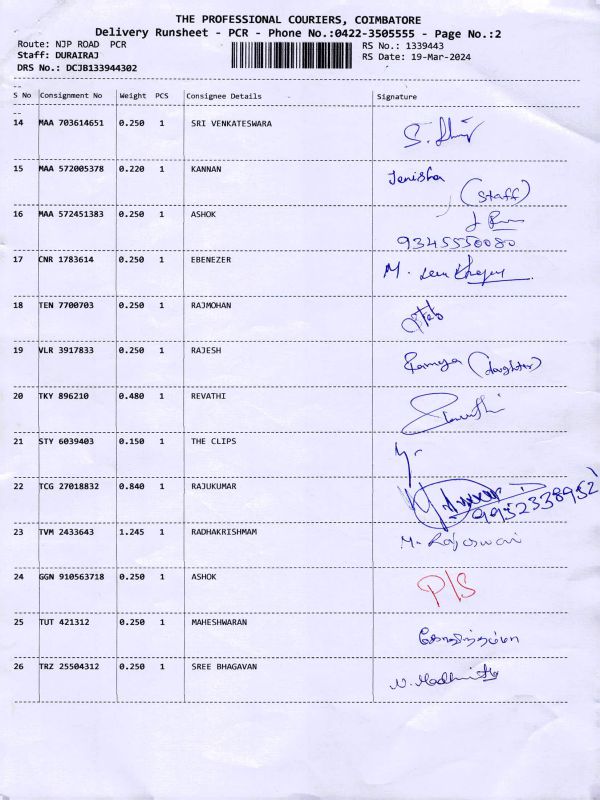 THE PROFESSIONAL COURIERS, COIMBATORE
Delivery Runsheet - PCR - Phone No.:0422-3505555 - Page No.:2
Route: NJP ROAD PCR RS No.: 1339443
Staff: DURAIRAJ RS Date: 19-Mar-2024
DRS No.: DCJB133944302
S No Consignment No Weight PCS Consignee Details Signature
14 MAA 703614651 0.250 1 SRI VENKATESWARA
15 MAA 572005378 0.220 1 KANNAN Jenisha (Staff)
16 MAA 572451383 0.250 1 ASHOK
9345550080
17 CNR 1783614 0.250 1 EBENEZER M.
18 TEN 7700703 0.250 1 RAJMOHAN
19 VLR 3917833 0.250 1 RAJESH Ramya (daughter)
20 TKY 896210 0.480 1 REVATHI
21 STY 6039403 0.150 1 THE CLIPS
22 TCG 27018832 0.840 1 RAJUKUMAR 9952338952
23 TVM 2433643 1.245 1 RADHAKRISHMAM M. Rajeswari
24 GGN 910563718 0.250 1 ASHOK P/S
25 TUT 421312 0.250 1 MAHESHWARAN
26 TRZ 25504312 0.250 1 SREE BHAGAVAN